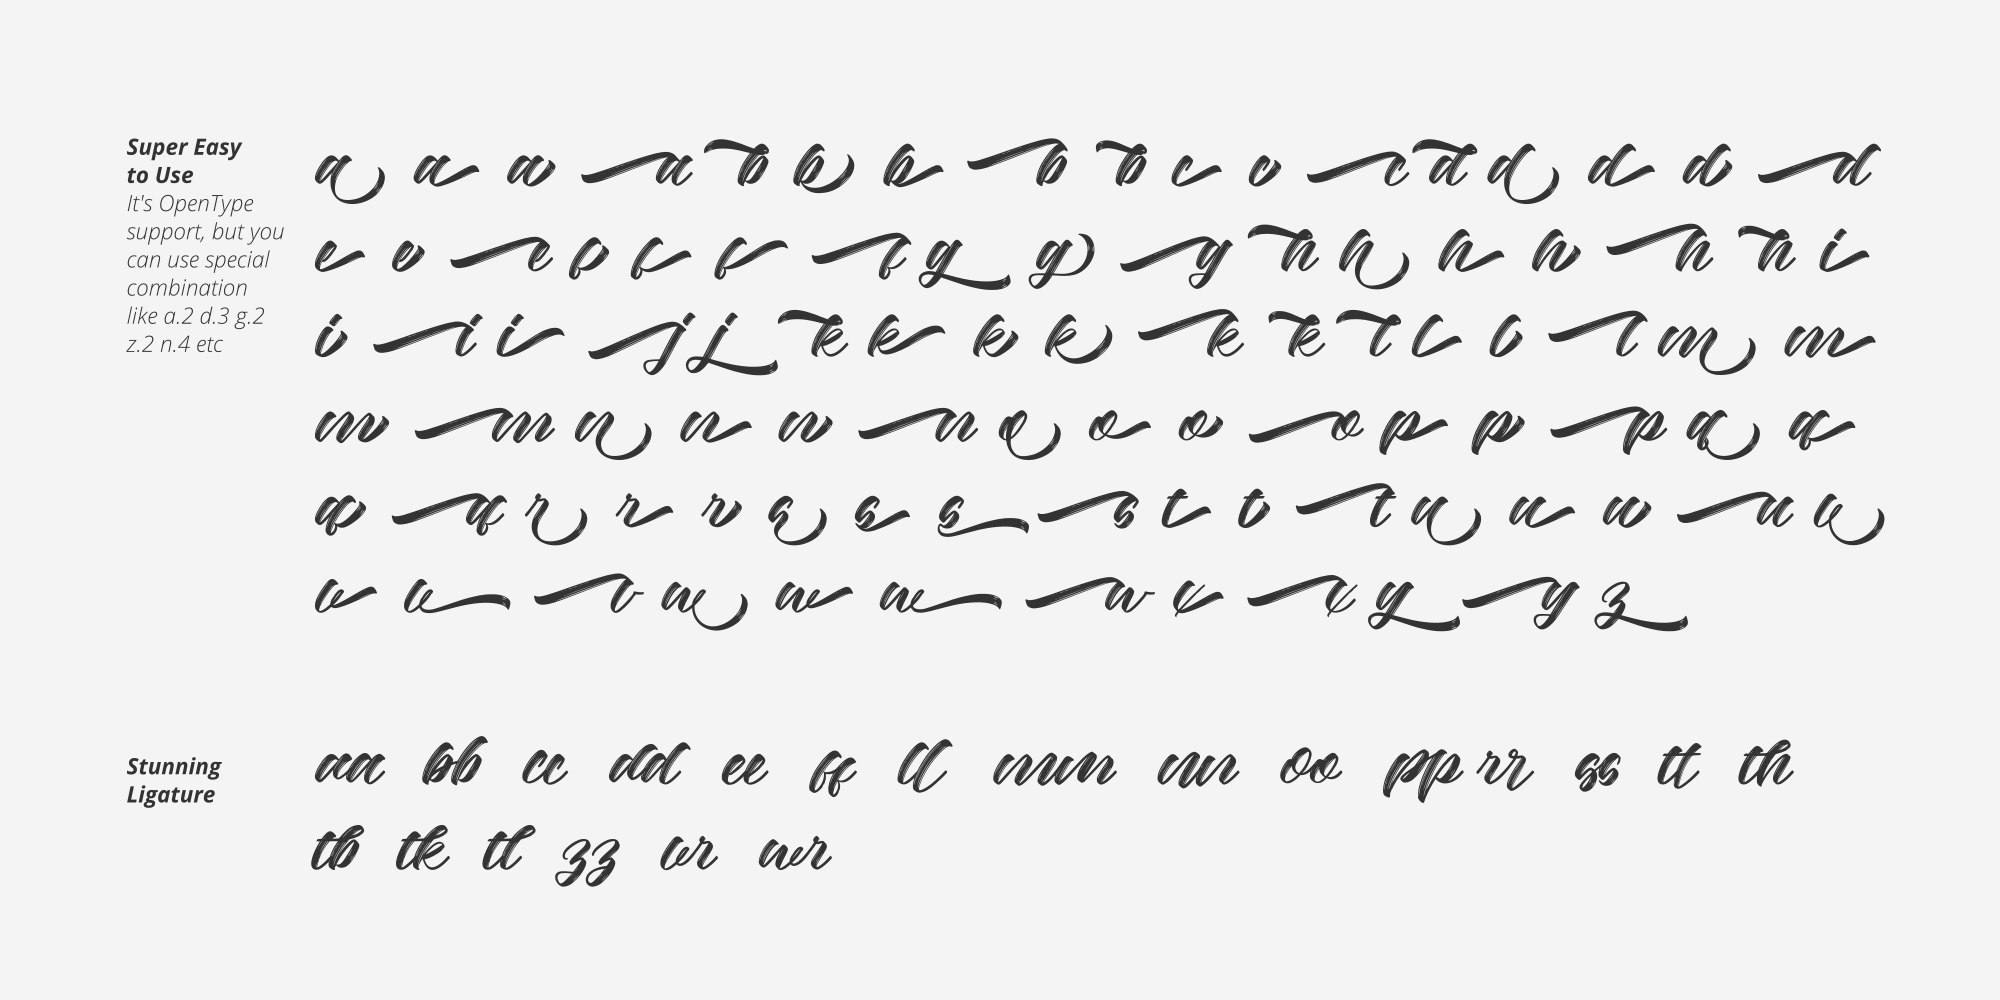 Super Easy
to Use
It's OpenType
support, but you
can use special
combination
like a.2 d.3 g.2
z.2 n.4 etc
a a a a b b b b b c c c d d d d d
e e e f f f f g g g h h h h h h i
i i i j j k k k k k k l l l l m m
m m n n n n o o o o p p p q q
q q r r r s s s s t t t u u u u v
v v v w w w w x x y y z
Stunning
Ligature
aa bb cc dd ee ff ll mm nn oo pp rr ss tt th
tb tk tl zz vr wr